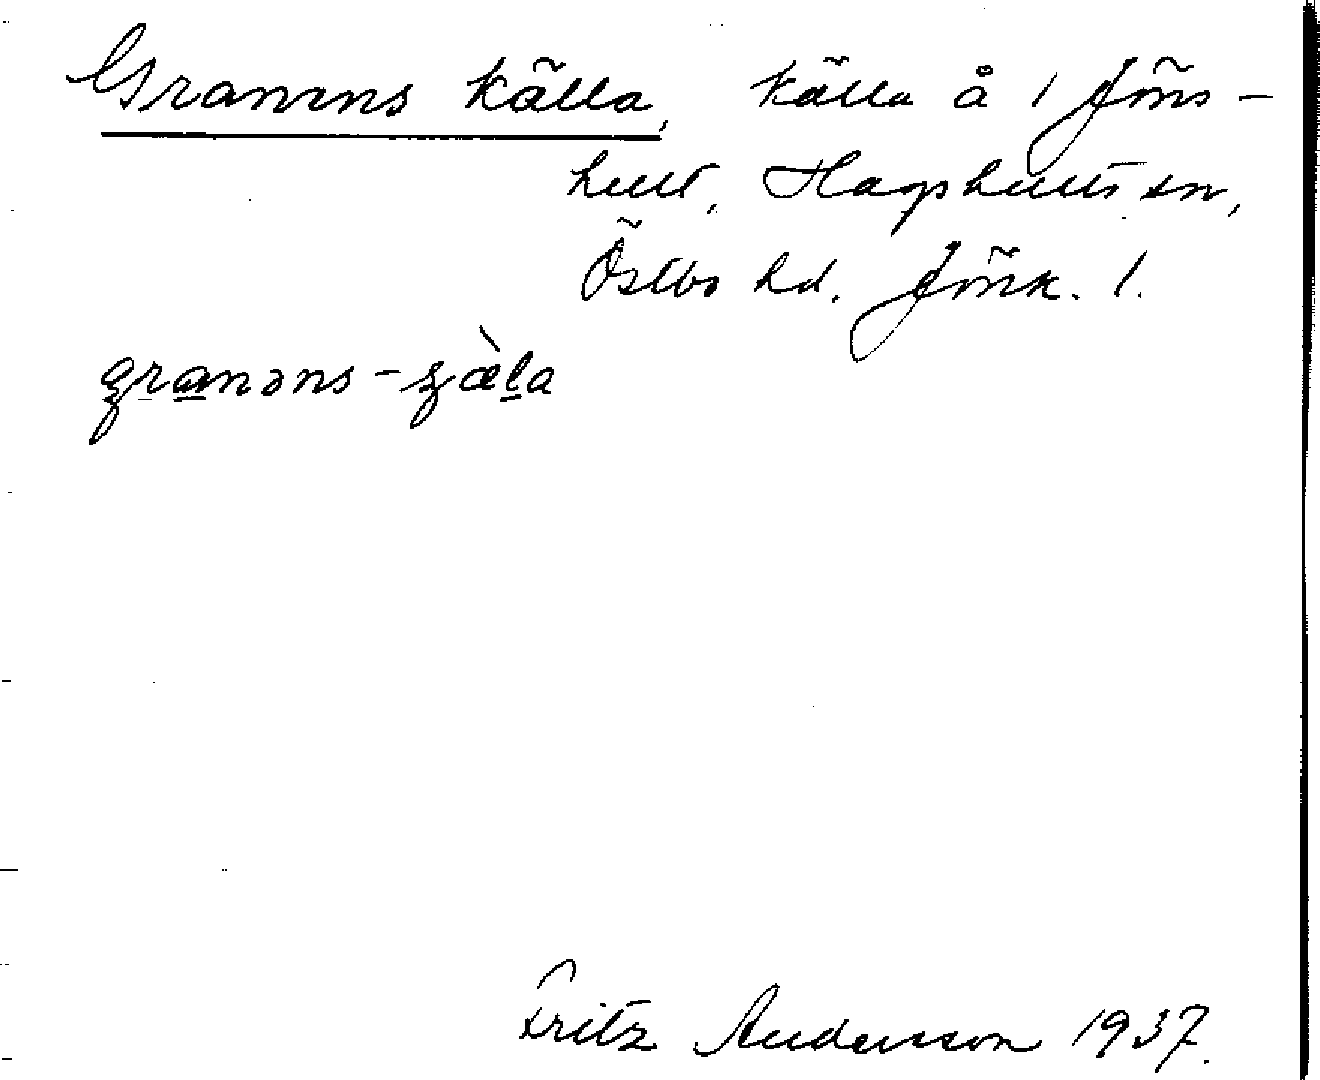 Granens källa, källa å 1 Jöns-
hult, Hagshults sn,
Östbo hd. Jönk. l.
granəns-ɕæ̀la
Fritz Andersson 1937.